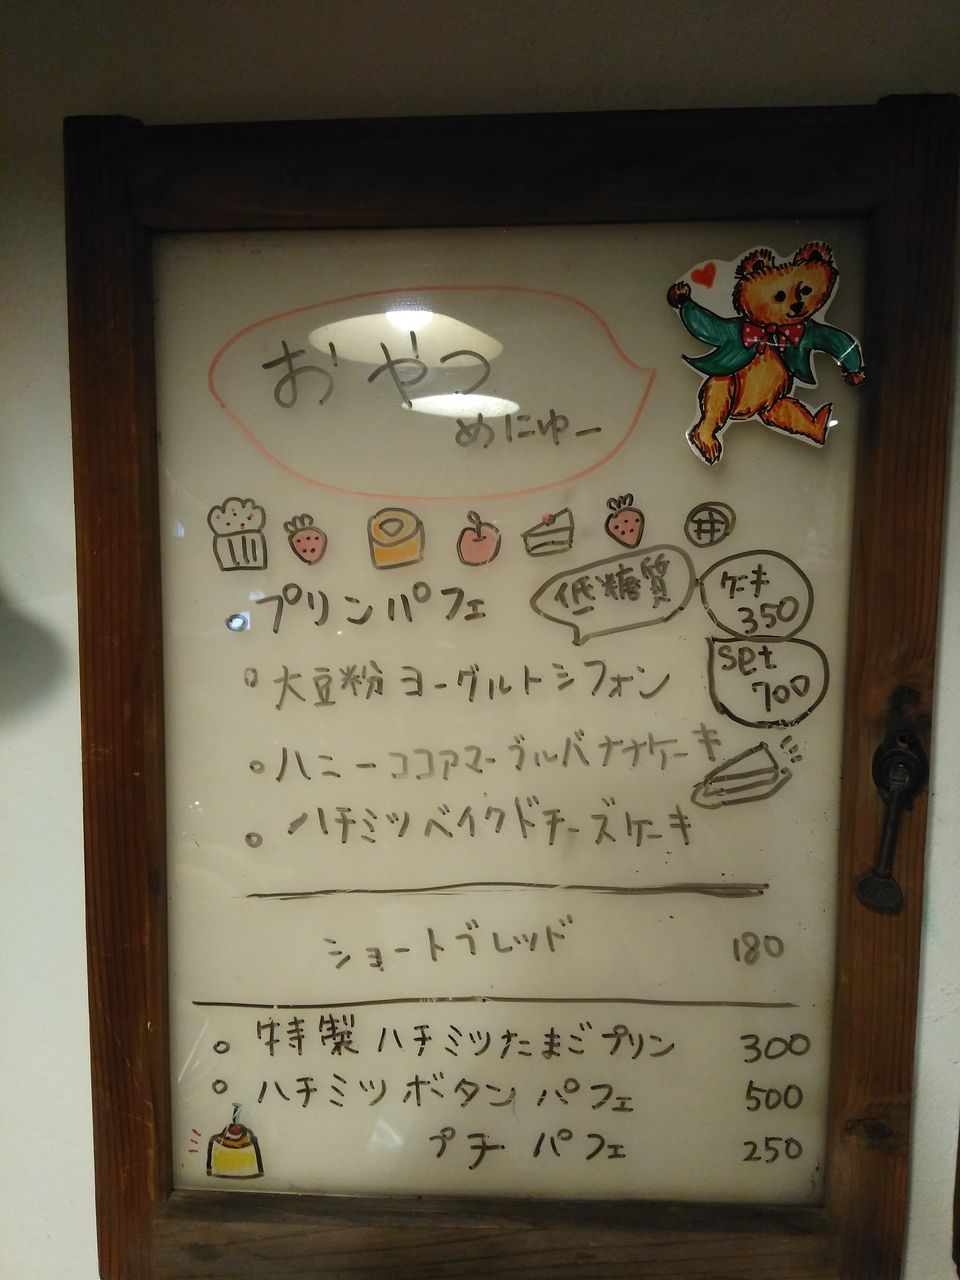 おやつ
めにゅー
プリンパフェ
低糖質
ケーキ
350
set
700
大豆粉ヨーグルトシフォン
ハニーココアマーブルバナナケーキ
ハチミツベイクドチーズケーキ
ショートブレッド 180
特製ハチミツたまごプリン 300
ハチミツボタンパフェ 500
プチパフェ 250